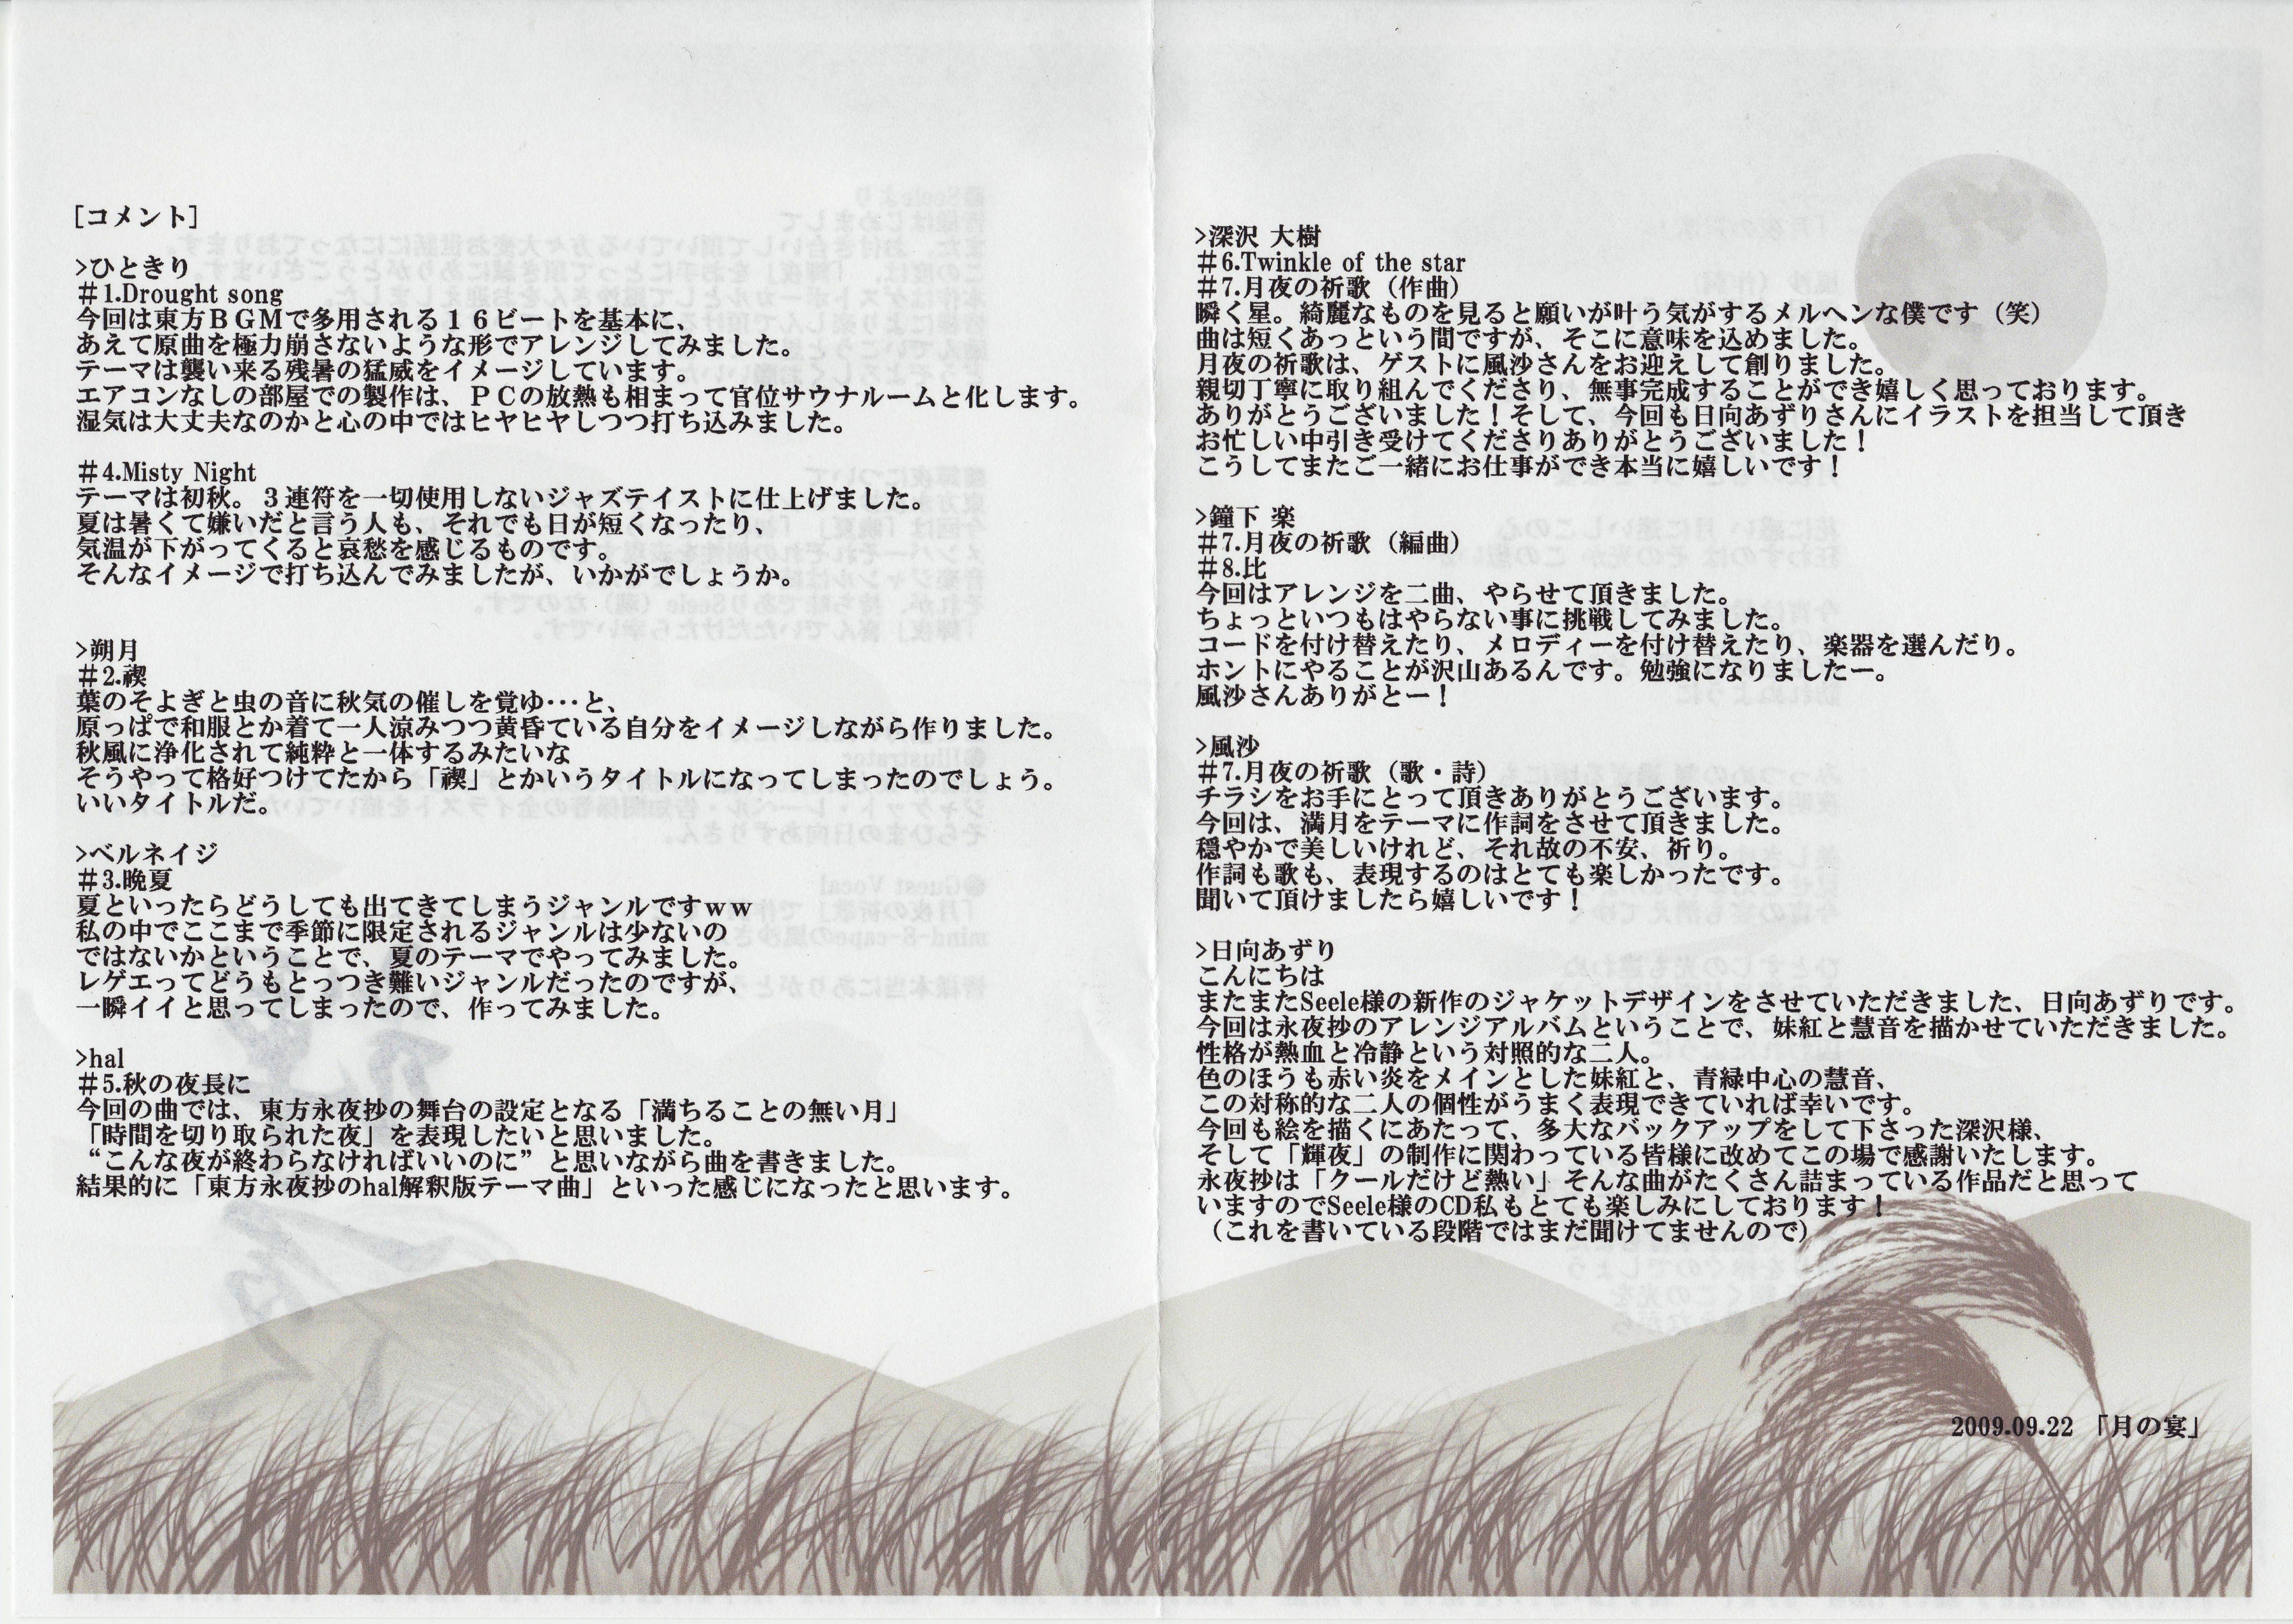 [コメント]
>ひときり
＃1.Drought song
今回は東方ＢＧＭで多用される１６ビートを基本に、
あえて原曲を極力崩さないような形でアレンジしてみました。
テーマは襲い来る残暑の猛威をイメージしています。
エアコンなしの部屋での製作は、ＰＣの放熱も相まって官位サウナルームと化します。
湿気は大丈夫なのかと心の中ではヒヤヒヤしつつ打ち込みました。
＃4.Misty Night
テーマは初秋。３連符を一切使用しないジャズテイストに仕上げました。
夏は暑くて嫌いだと言う人も、それでも日が短くなったり、
気温が下がってくると哀愁を感じるものです。
そんなイメージで打ち込んでみましたが、いかがでしょうか。
>朔月
＃2.禊
葉のそよぎと虫の音に秋気の催しを覚ゆ…と、
原っぱで和服とか着て一人涼みつつ黄昏ている自分をイメージしながら作りました。
秋風に浄化されて純粋と一体するみたいな
そうやって格好つけてたから「禊」とかいうタイトルになってしまったのでしょう。
いいタイトルだ。
>ベルネイジ
＃3.晩夏
夏といったらどうしても出てきてしまうジャンルですｗｗ
私の中でここまで季節に限定されるジャンルは少ないの
ではないかということで、夏のテーマでやってみました。
レゲエってどうもとっつき難いジャンルだったのですが、
一瞬イイと思ってしまったので、作ってみました。
>hal
＃5.秋の夜長に
今回の曲では、東方永夜抄の舞台の設定となる「満ちることの無い月」
「時間を切り取られた夜」を表現したいと思いました。
“こんな夜が終わらなければいいのに”と思いながら曲を書きました。
結果的に「東方永夜抄のhal解釈版テーマ曲」といった感じになったと思います。
>深沢 大樹
＃6.Twinkle of the star
＃7.月夜の祈歌（作曲）
瞬く星。綺麗なものを見ると願いが叶う気がするメルヘンな僕です（笑）
曲は短くあっという間ですが、そこに意味を込めました。
月夜の祈歌は、ゲストに風沙さんをお迎えして創りました。
親切丁寧に取り組んでくださり、無事完成することができ嬉しく思っております。
ありがとうございました！そして、今回も日向あずりさんにイラストを担当して頂き
お忙しい中引き受けてくださりありがとうございました！
こうしてまたご一緒にお仕事ができ本当に嬉しいです！
>鐘下 楽
＃7.月夜の祈歌（編曲）
＃8.比
今回はアレンジを二曲、やらせて頂きました。
ちょっといつもはやらない事に挑戦してみました。
コードを付け替えたり、メロディーを付け替えたり、楽器を選んだり。
ホントにやることが沢山あるんです。勉強になりましたー。
風沙さんありがとー！
>風沙
＃7.月夜の祈歌（歌・詩）
チラシをお手にとって頂きありがとうございます。
今回は、満月をテーマに作詞をさせて頂きました。
穏やかで美しいけれど、それ故の不安、祈り。
作詞も歌も、表現するのはとても楽しかったです。
聞いて頂けましたら嬉しいです！
>日向あずり
こんにちは
またまたSeele様の新作のジャケットデザインをさせていただきました、日向あずりです。
今回は永夜抄のアレンジアルバムということで、妹紅と慧音を描かせていただきました。
性格が熱血と冷静という対照的な二人。
色のほうも赤い炎をメインとした妹紅と、青緑中心の慧音、
この対称的な二人の個性がうまく表現できていれば幸いです。
今回も絵を描くにあたって、多大なバックアップをして下さった深沢様、
そして「輝夜」の制作に関わっている皆様に改めてこの場で感謝いたします。
永夜抄は「クールだけど熱い」そんな曲がたくさん詰まっている作品だと思って
いますのでSeele様のCD私もとても楽しみにしております！
（これを書いている段階ではまだ聞けてませんので）
2009.09.22 「月の宴」